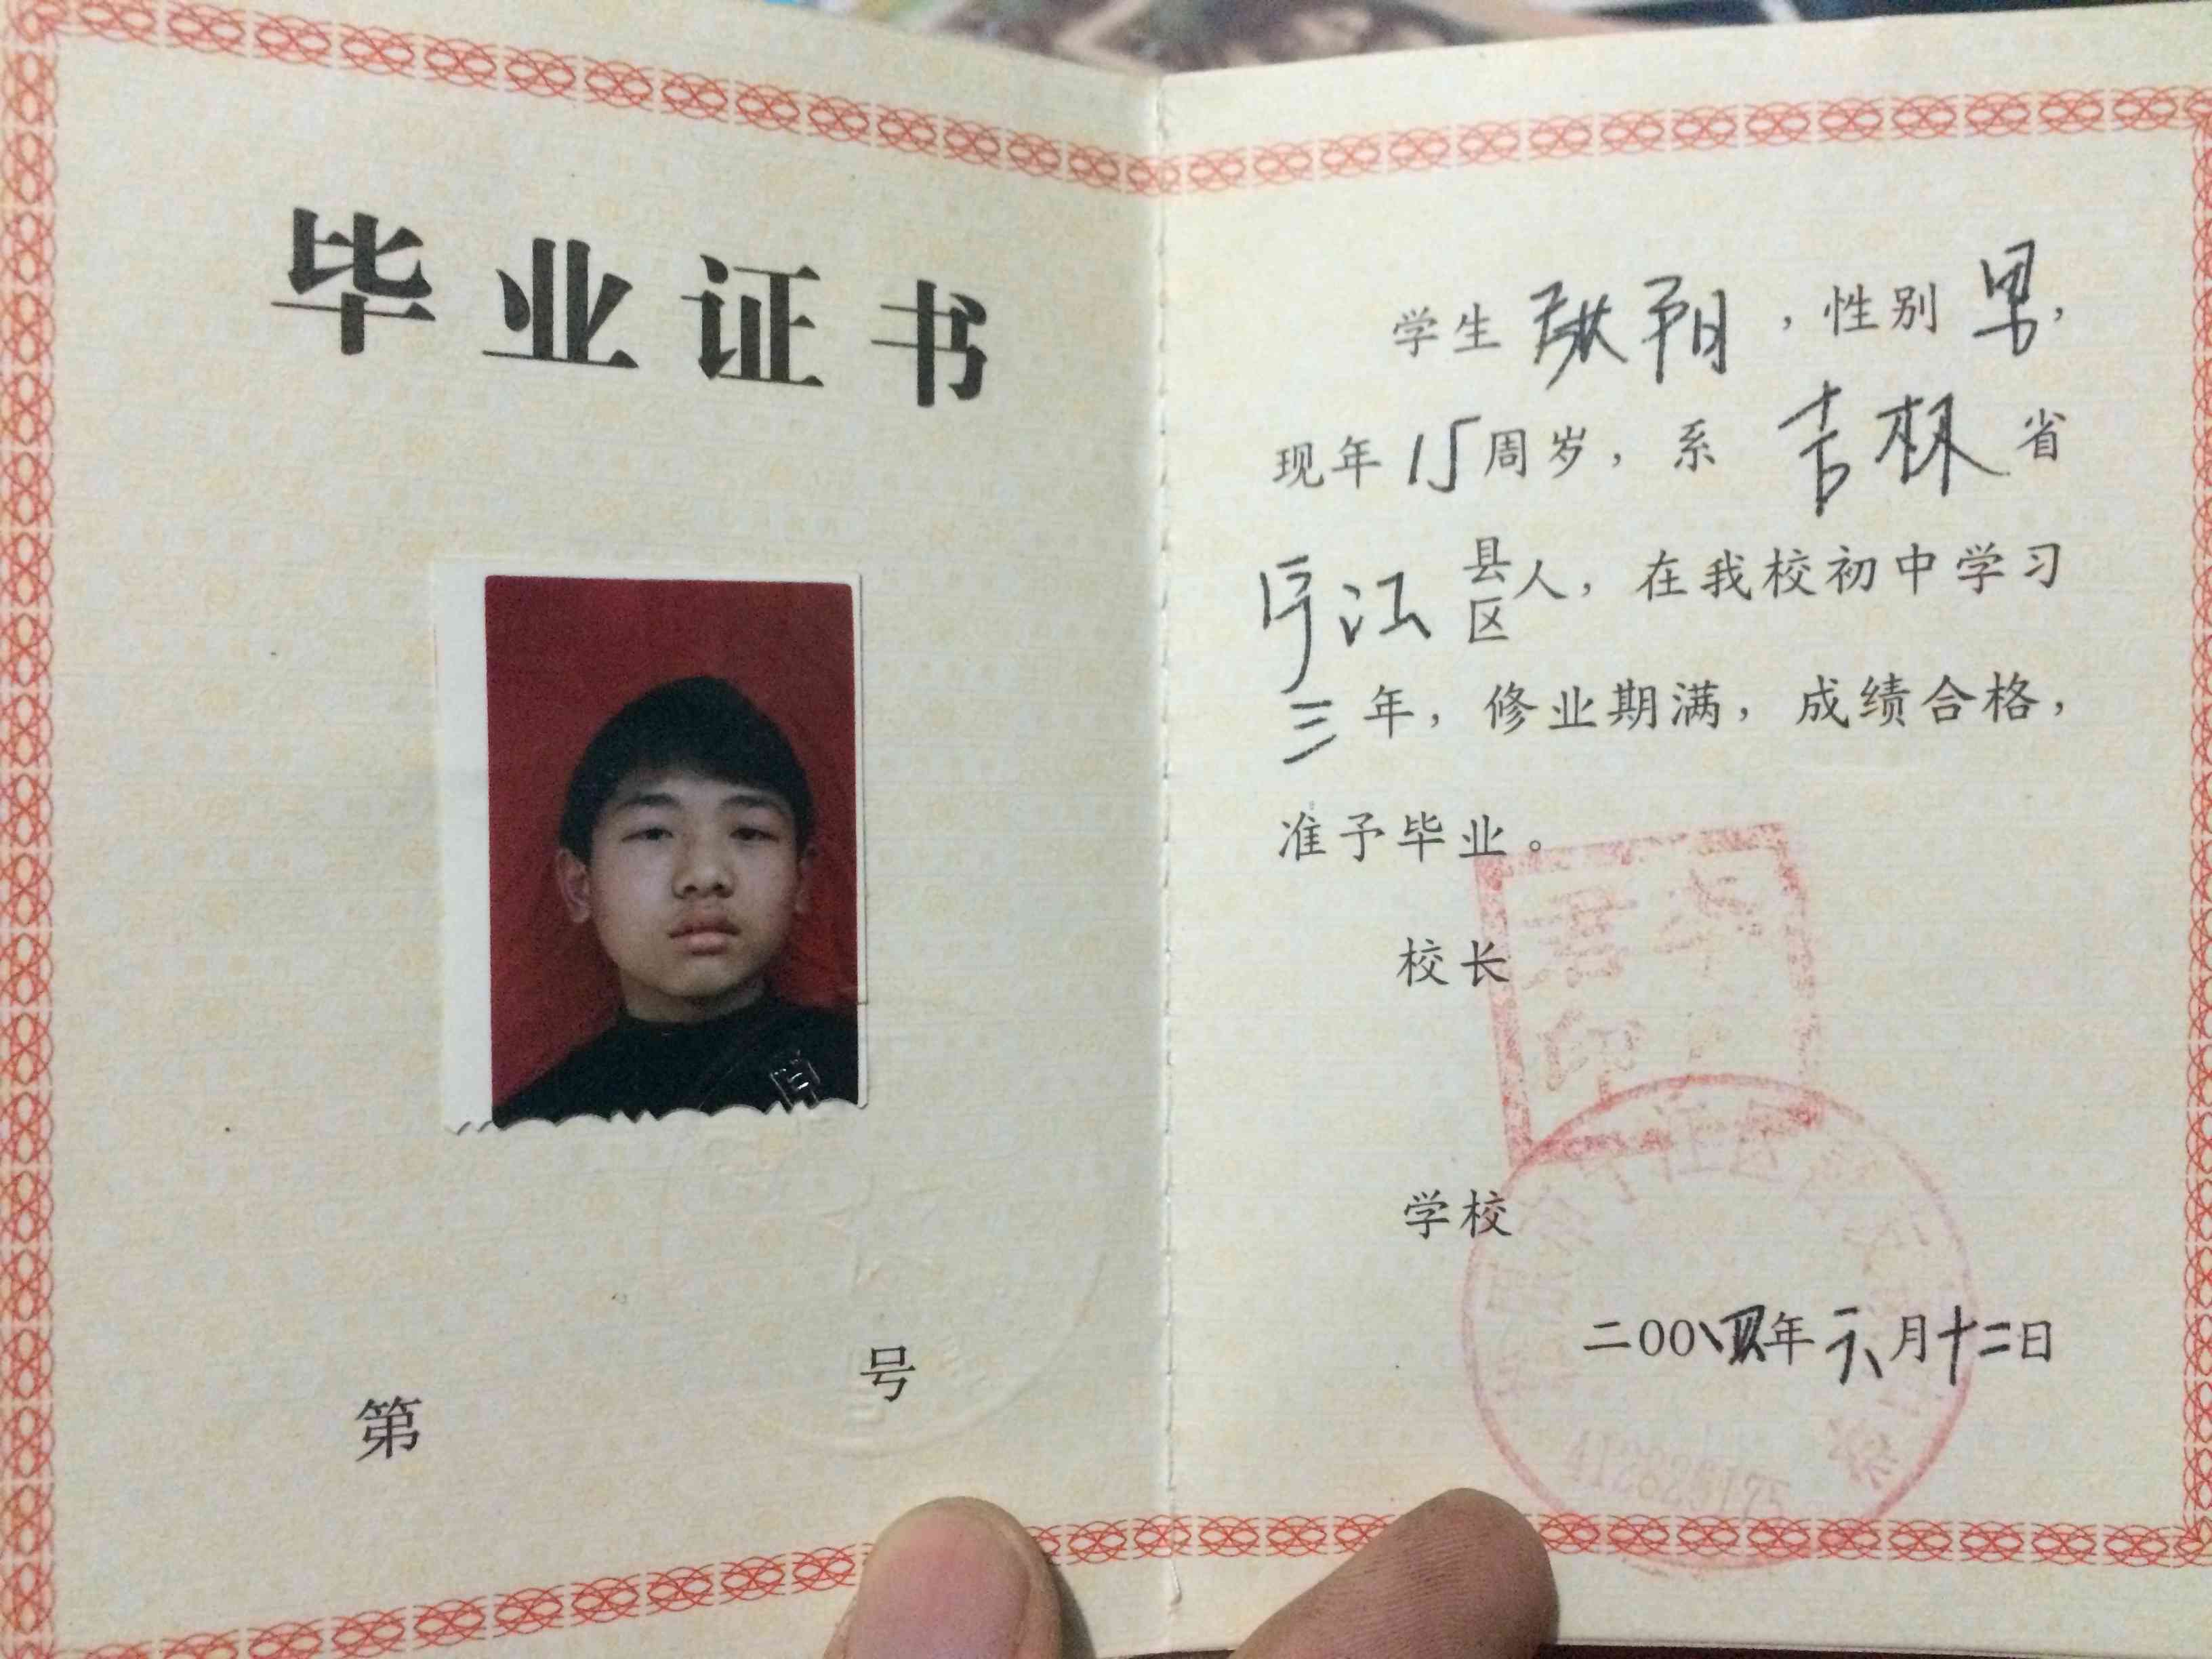 毕业证书
第 号
学生 耿翔 ，性别 男，
现年 15 周岁，系 吉林 省
宁江 县区人，在我校初中学习
三年，修业期满，成绩合格，
准予毕业。
校长
学校
二00四年六月十二日